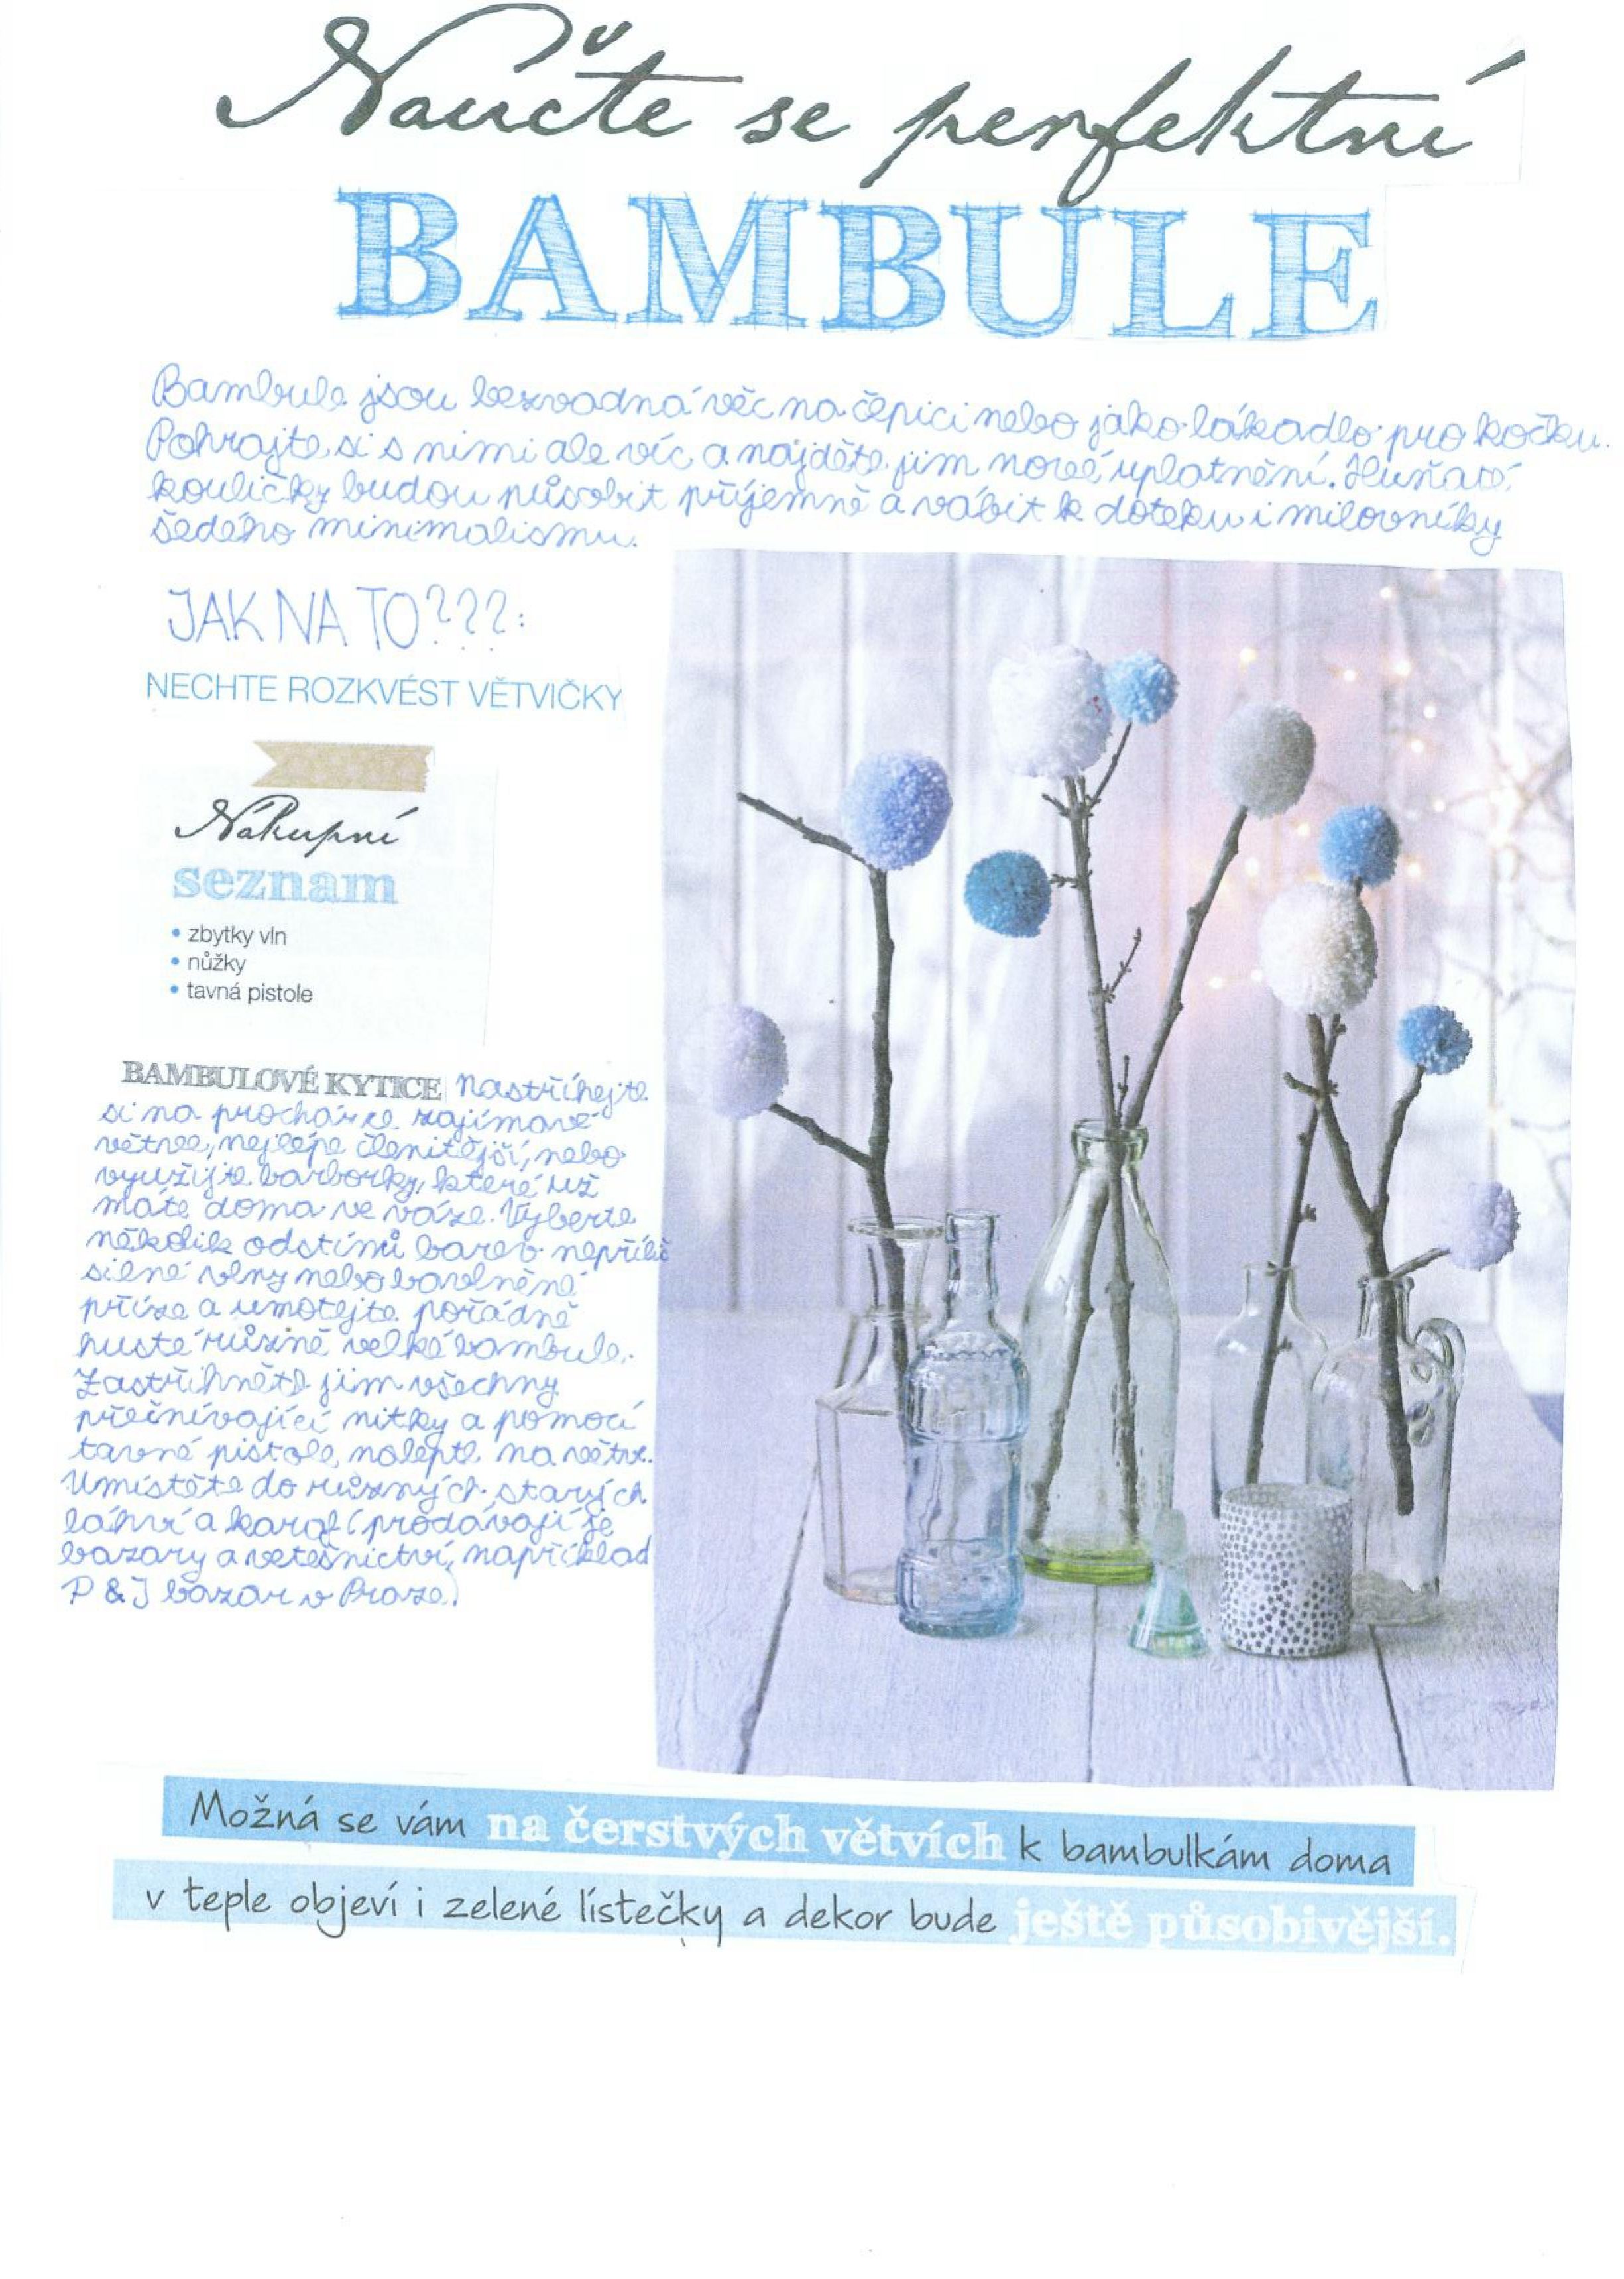 Naučte se perfektní
BAMBULE
Bambule jsou bezvadná věc na čepici nebo jako lákadlo pro kočku.
Pohrajte si s nimi ale víc a najděte jim nové uplatnění. Huňaté
kouličky budou působit příjemně a vábit k doteku i milovníky
šedého minimalismu.
JAK NA TO???:
NECHTE ROZKVÉST VĚTVIČKY
Nákupní
seznam
• zbytky vln
• nůžky
• tavná pistole
BAMBULOVÉ KYTICE Nastříhejte
si na procházce zajímavé
větve, nejlépe členitější, nebo
využijte barborky, které už
máte doma ve váze. Vyberte
několik odstínů barev nepříliš
silné vlny nebo bavlněné
příze a umotejte pořádně
husté různě velké bambule.
Zastřihněte jim všechny
přečnívající nitky a pomocí
tavné pistole nalepte na větve.
Umístěte do různých starých
láhví a karaf (prodávají je
bazary a vetešnictví, například
P & J bazar v Praze).
Možná se vám na čerstvých větvích k bambulkám doma
v teple objeví i zelené lístečky a dekor bude ještě působivější.